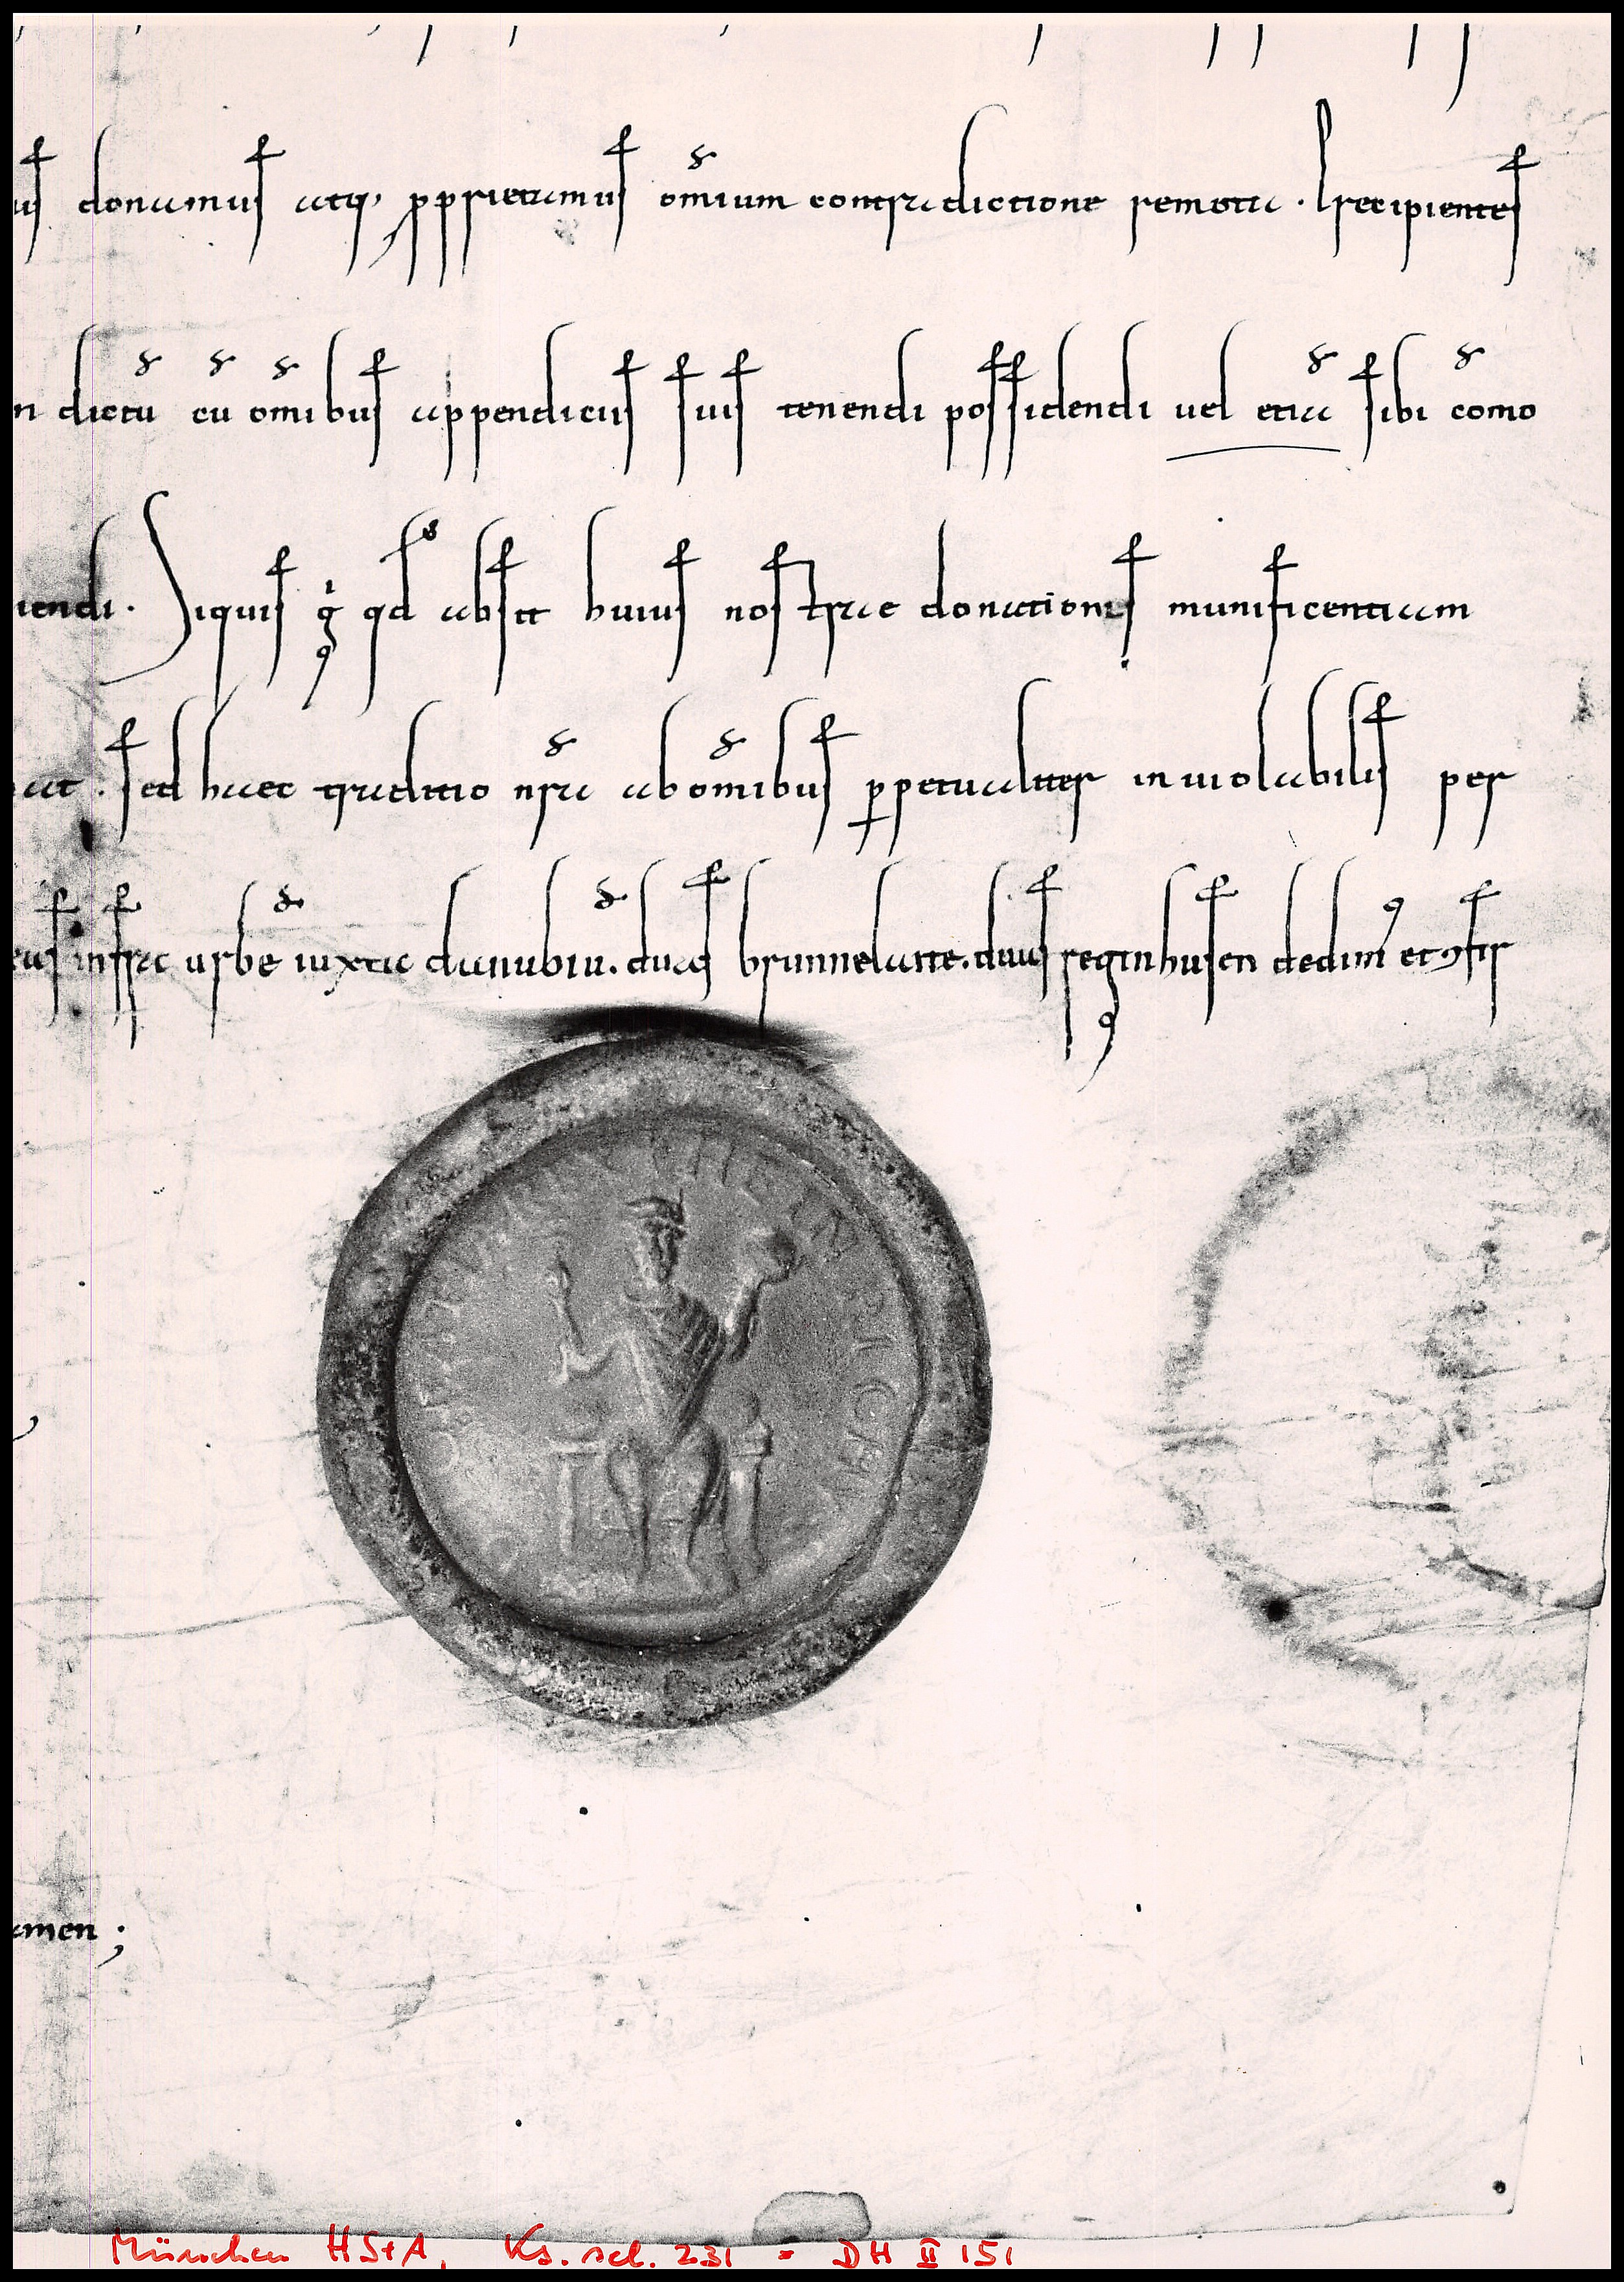 donamus atq; ꝓpprietamus om̄ium contradictione remota . Precipientes
dictū cū om̄ibus appendiciis suis tenendi possidendi uel etiā sibi cōmo
Siquis g̊ qd̄ absit huius nostrae donationis munificentiam
sed haec traditio nr̄a ab om̄ibus ꝑpetualiter inuiolabilis per
infra urbē iuxta danubiū. duas brunnelatte. duas reginhusen dedimꝰ et ꝯfir
amen ;
München HStA, Ks. sel. 231 = DH II 151